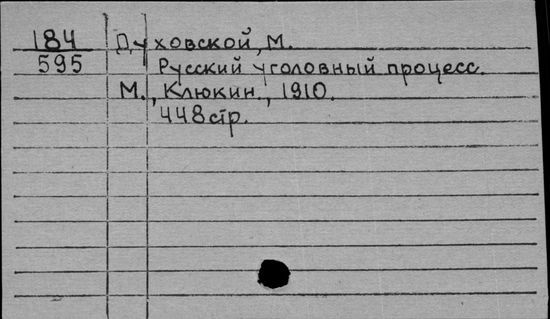 184 Духовской, М.
595 Русский уголовный процесс.
М., Клюкин., 1910.
448 стр.